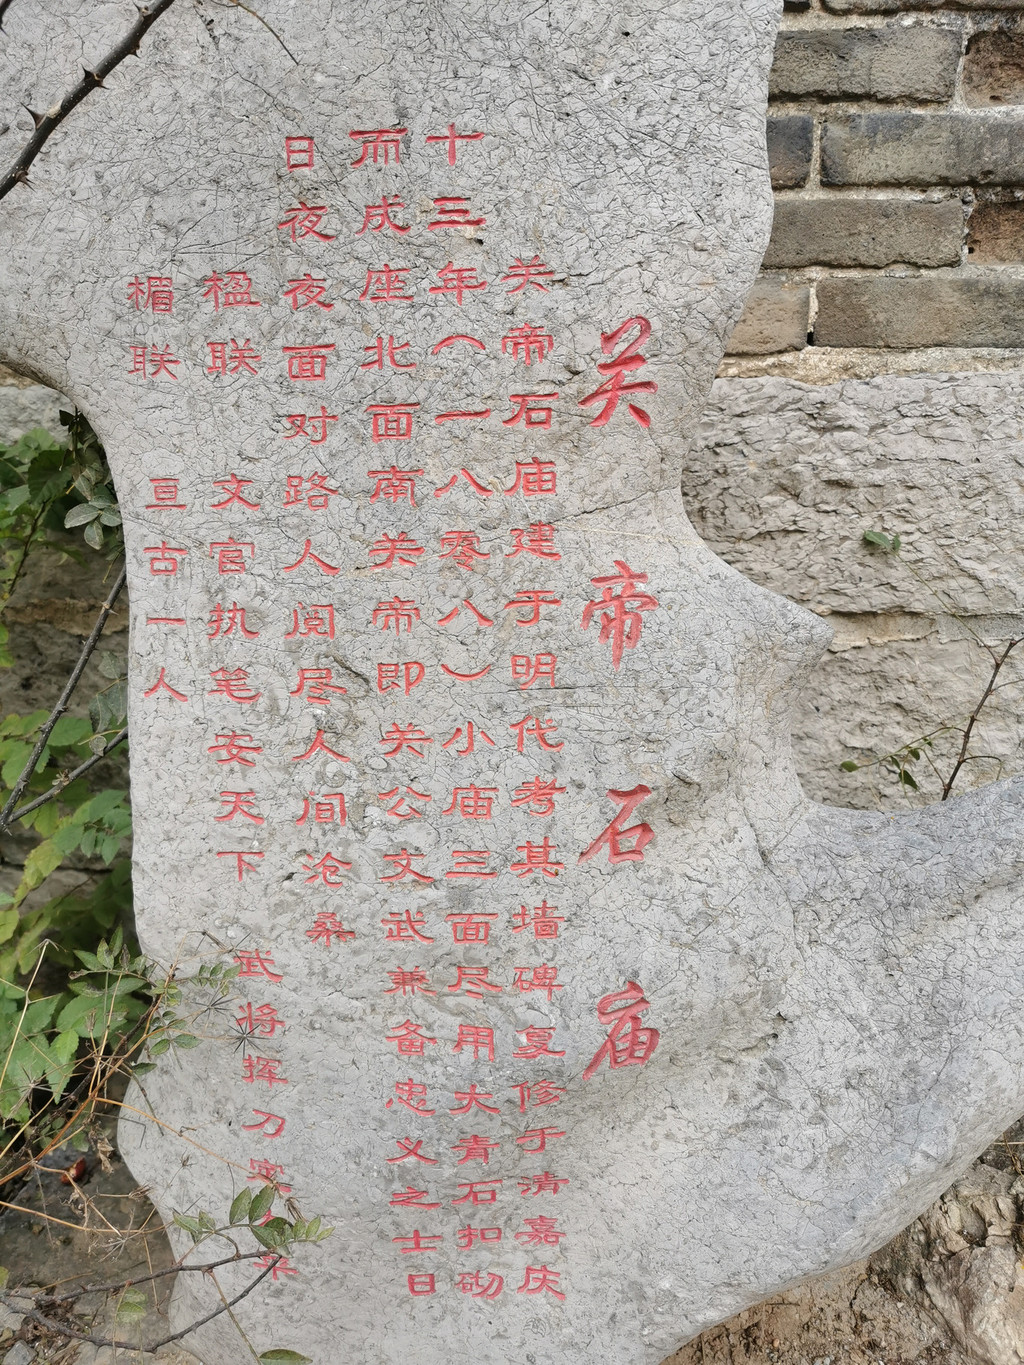 关帝石庙
关帝石庙建于明代考其墙碑复修于清嘉庆
十三年(一八零八)小庙三面尽用大青石扣砌
而成座北面南关帝即关公文武兼备忠义之士日
日夜夜面对路人阅尽人间沧桑
楹联 文官执笔安天下 武将挥刀定
楣联 亘古一人